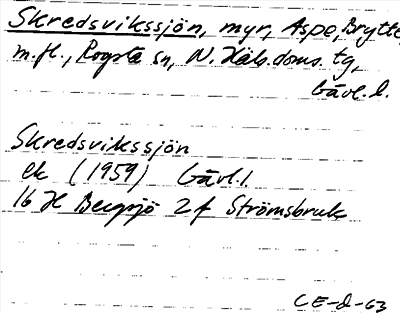 Skredsvikssjön, myr, Aspe, Brytte,
m.fl., Rogsta sn, N. Häls. doms. tg,
Gävl. l.
Skredsvikssjön
ek (1959) Gävl. l.
16 H Bergsjö 2 f Strömsbruk
CE-d-63